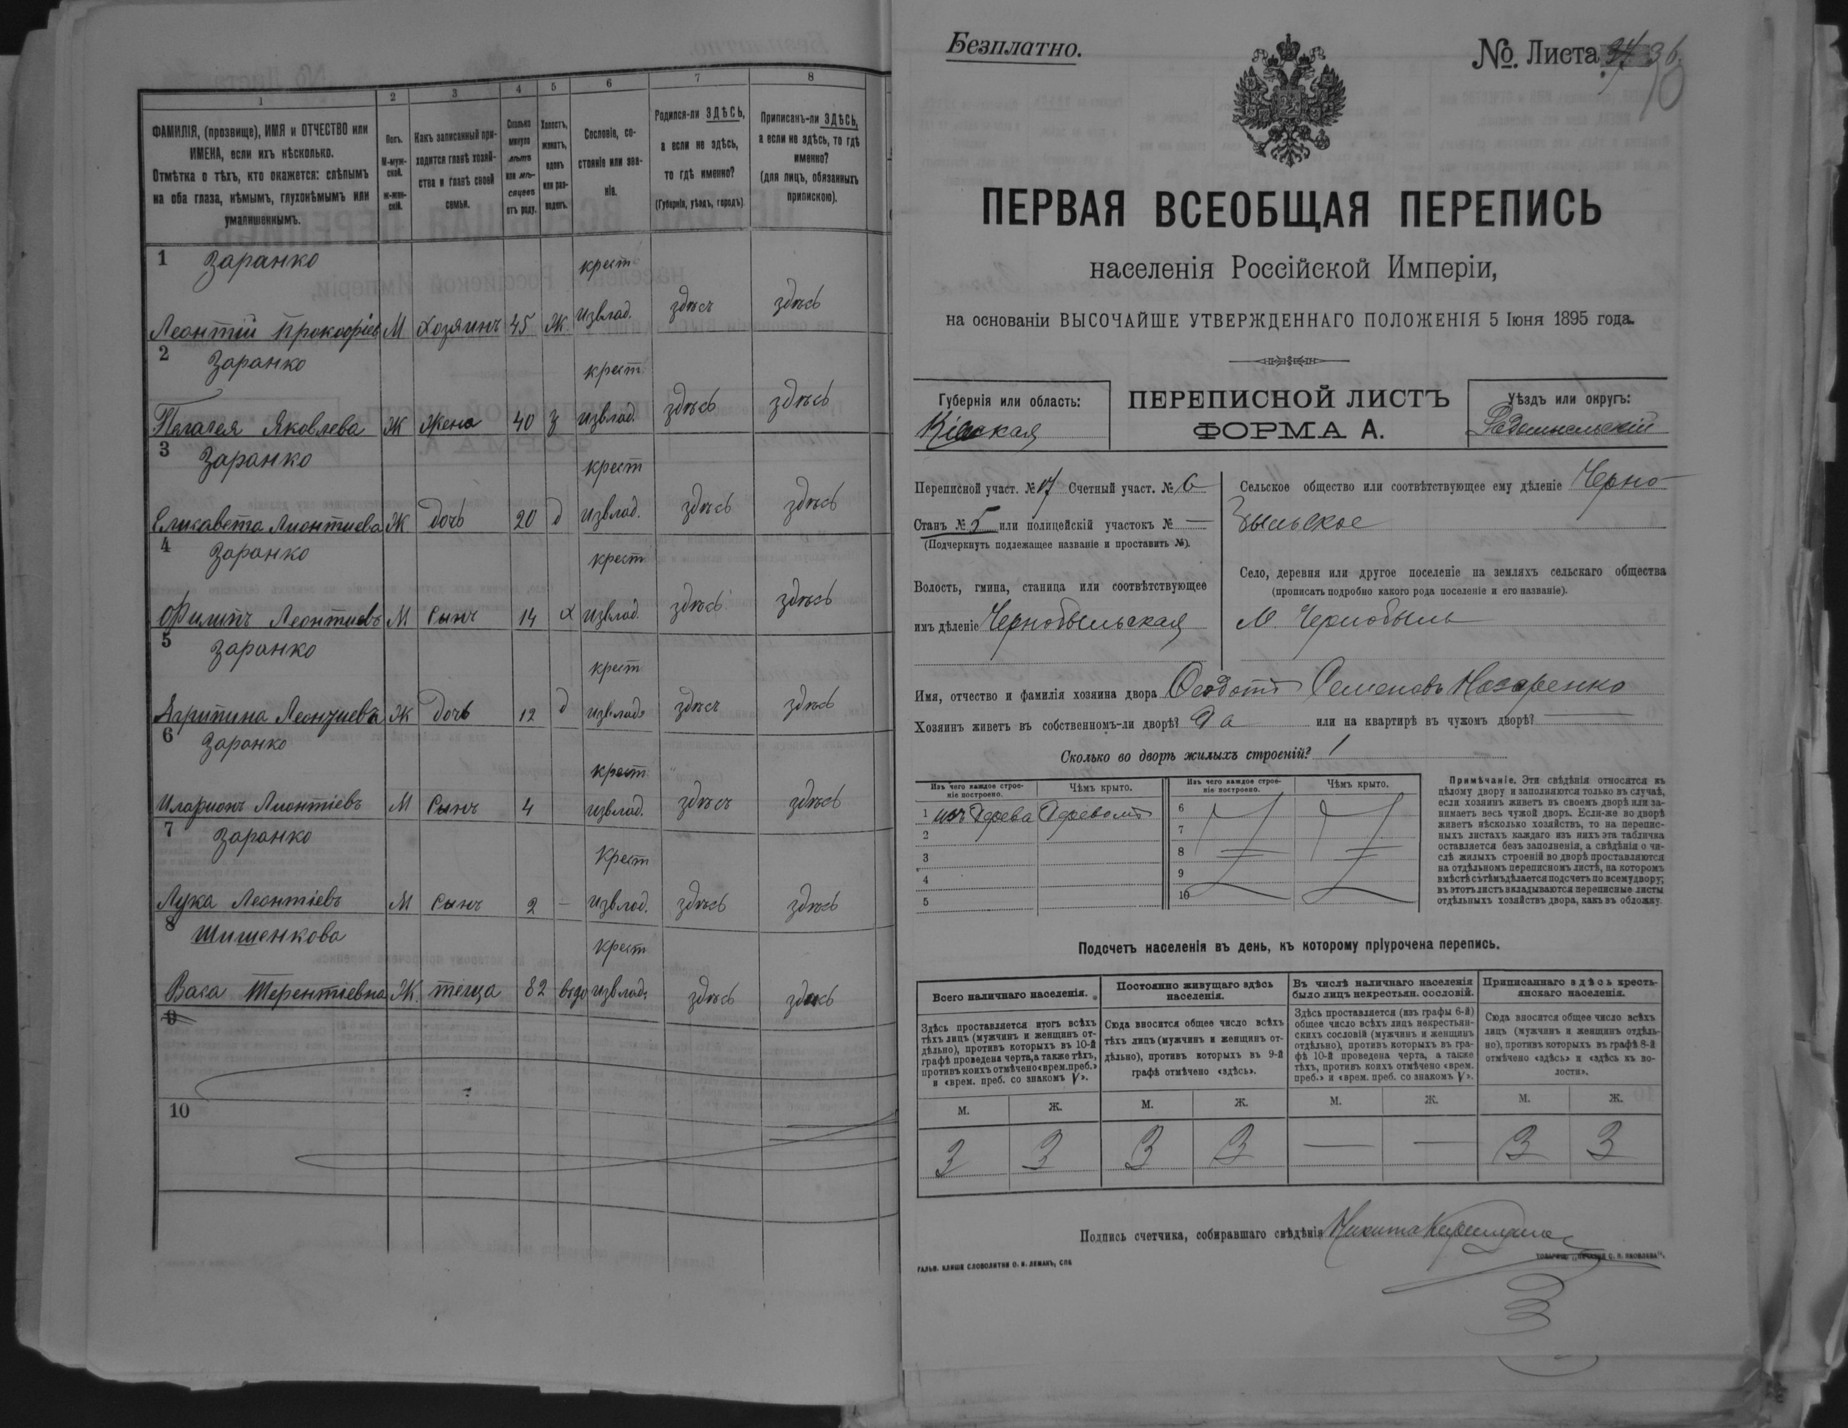 1
2
3
4
5
6
7
8
ФАМИЛІЯ, (прозвище), ИМЯ и ОТЧЕСТВО или
ИМЕНА, если ихъ нѣсколько.
Отмѣтка о тѣхъ, кто окажется: слѣпымъ
на оба глаза, нѣмымъ, глухонѣмымъ или
умалишеннымъ.
Полъ.
М-муж-
ской.
ж-жен-
скій.
Какъ записанный при-
ходится главѣ хозяй-
ства и главѣ своей
семьи.
Сколько
минуло
лѣтъ
или мѣ-
сяцевъ
отъ роду.
Холостъ,
женатъ,
вдовъ
или раз-
веденъ.
Сословіе, со-
стояніе или зва-
ніе.
Родился-ли ЗДѢСЬ,
а если не здѣсь,
то гдѣ именно?
(Губернія, уѣздъ, городъ).
Приписанъ-ли ЗДѢСЬ,
а если не здѣсь, то гдѣ
именно?
(для лицъ, обязанныхъ
припискою).
1 Заранко крест
Леонтій Прокофіев М Хозяинъ 45 Ж. извлад. здѣсь здѣсь
2 Заранко крест
Пелагея Яковлева Ж Жена 40 з извлад. здѣсь здѣсь
3 Заранко крест
Елисавета Леонтиева Ж дочь 20 д извлад. здѣсь здѣсь
4 Заранко крест
Филипъ Леонтиевъ М сынъ 14 х извлад. здѣсь здѣсь
5 Заранко крест
Агрипина Леонтиева Ж дочь 12 д извлад. здѣсь здѣсь
6 Заранко крест
Иларионъ Леонтіевъ М сынъ 4 извлад. здѣсь здѣсь
7 Заранко Крест
Лука Леонтіевъ М сынъ 2 – извлад. здѣсь здѣсь
8 Шишенкова крест
Васа Терентіевна Ж. теща 82 вдо извлад. здѣсь здѣсь
9
10
Безплатно.
№. Листа 36
ПЕРВАЯ ВСЕОБЩАЯ ПЕРЕПИСЬ
населенія Россійской Имперіи,
на основаніи ВЫСОЧАЙШЕ УТВЕРЖДЕННАГО ПОЛОЖЕНІЯ 5 Іюня 1895 года.
Губернія или область:
Кіевская
ПЕРЕПИСНОЙ ЛИСТЪ
ФОРМА А.
Уѣздъ или округъ:
Радомысльскій
Переписной участ. № 17 Счетный участ. № 6
Станъ № 5 или полицейскій участокъ № —
(Подчеркнуть подлежащее названіе и проставить №).
Волость, гмина, станица или соотвѣтствующее
имъ дѣленіе Чернобыльская
Сельское общество или соотвѣтствующее ему дѣленіе Черно-
быльское
Село, деревня или другое поселеніе на земляхъ сельскаго общества
(прописать подробно какого рода поселеніе и его названіе).
М. Чернобыль
Имя, отчество и фамилія хозяина двора Феодотъ Семеновъ Назаренко
Хозяинъ живетъ въ собственномъ-ли дворѣ? Да или на квартирѣ въ чужомъ дворѣ? —
Сколько во дворѣ жилыхъ строеній? 1
Изъ чего каждое строе-
ніе построено.
Чѣмъ крыто.
Изъ чего каждое строе-
ніе построено.
Чѣмъ крыто.
1 изъ дерева деревомъ
2
3
4
5
6
7
8
9
10
Примѣчаніе. Эти свѣдѣнія относятся къ
цѣлому двору и заполняются только въ случаѣ,
если хозяинъ живетъ въ своемъ дворѣ или за-
нимаетъ весь чужой дворъ. Если-же во дворѣ
живетъ нѣсколько хозяйствъ, то на перепис-
ныхъ листахъ каждаго изъ нихъ эта табличка
оставляется безъ заполненія, а свѣдѣнія о чи-
слѣ жилыхъ строеній во дворѣ проставляются
на отдѣльномъ переписномъ листѣ, на которомъ
вмѣстѣ съ тѣмъ дѣлается подсчетъ по всему двору;
въ этотъ листъ вкладываются переписные листы
отдѣльныхъ хозяйствъ двора, какъ въ обложку.
Подсчетъ населенія въ день, къ которому пріурочена перепись.
Всего наличнаго населенія.
Постоянно живущаго здѣсь
населенія.
Въ числѣ наличнаго населенія
было лицъ некрестьян. сословій.
Приписаннаго здѣсь кресть-
янскаго населенія.
Здѣсь проставляется итогъ всѣхъ
тѣхъ лицъ (мужчинъ и женщинъ от-
дѣльно), противъ которыхъ въ 10-й
графѣ проведена черта, а также тѣхъ,
противъ коихъ отмѣчено «врем. преб.»
и «врем. преб. со знакомъ V».
Сюда вносится общее число всѣхъ
тѣхъ лицъ (мужчинъ и женщинъ от-
дѣльно), противъ которыхъ въ 9-й
графѣ отмѣчено «здѣсь».
Здѣсь проставляется (изъ графы 6-й)
общее число всѣхъ лицъ некрестьян-
скихъ сословій (мужчинъ и женщинъ
отдѣльно), противъ которыхъ въ гра-
фѣ 10-й проведена черта, а также
тѣхъ, противъ коихъ отмѣчено «врем.
преб.» и «врем. преб. со знакомъ V».
Сюда вносится общее число всѣхъ
лицъ (мужчинъ и женщинъ отдѣль-
но), противъ которыхъ въ графѣ 8-й
отмѣчено «здѣсь» и «здѣсь въ во-
лости».
М. Ж. М. Ж. М. Ж. М. Ж.
3 3 3 3 — — 3 3
Подпись счетчика, собиравшаго свѣдѣнія Никита
ГАЛЬВ. КЛИШЕ СЛОВОЛИТНИ О. И. ЛЕМАНЪ, СПБ
3